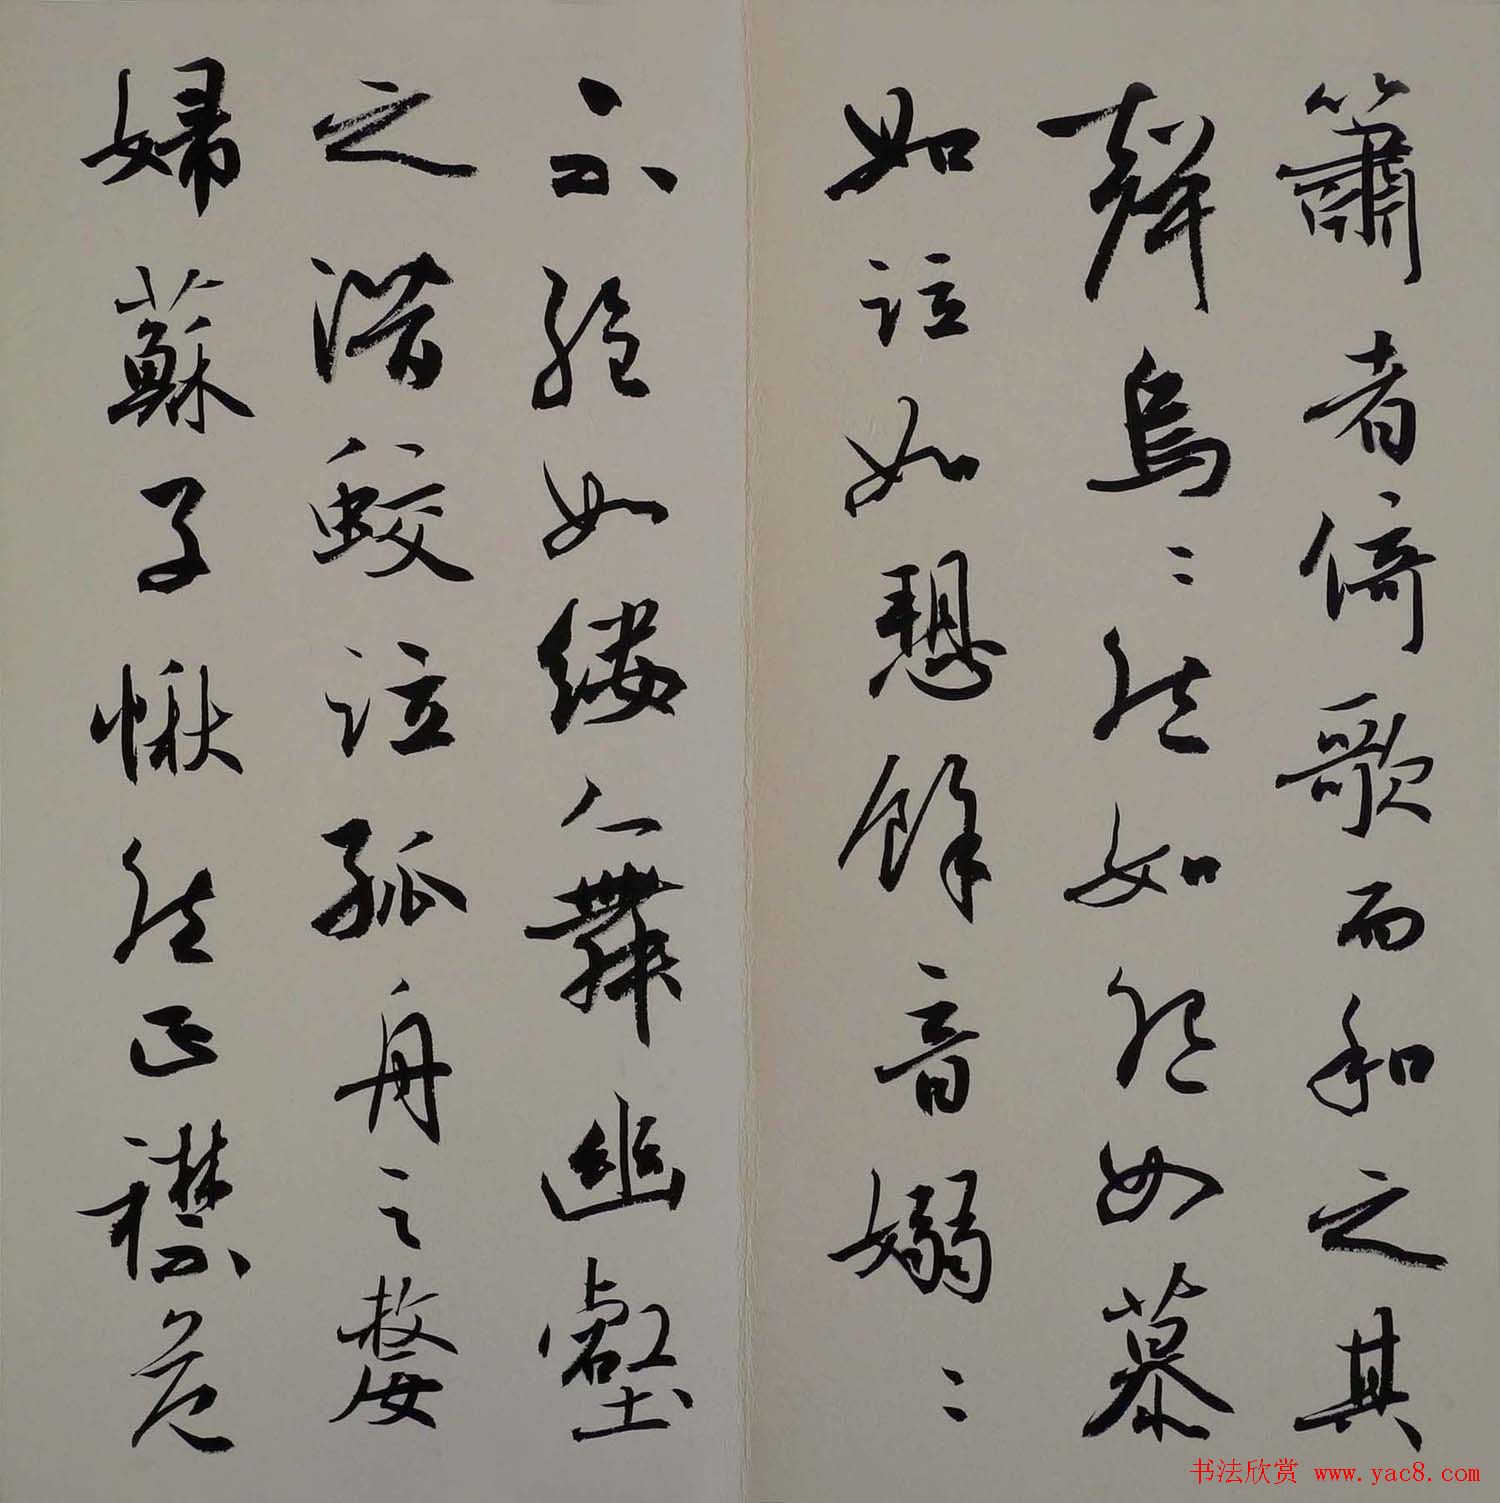 簫者倚歌而和之其
聲烏〻然如怨如慕
如泣如愬餘音嫋〻
不絕如縷舞幽壑
之潛蛟泣孤舟之嫠
婦蘇子愀然正襟危
书法欣赏 www.yac8.com